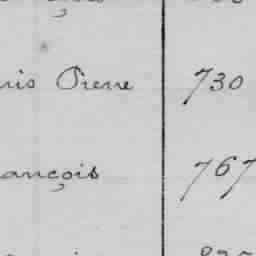 ris Pierre 730
ançois 767